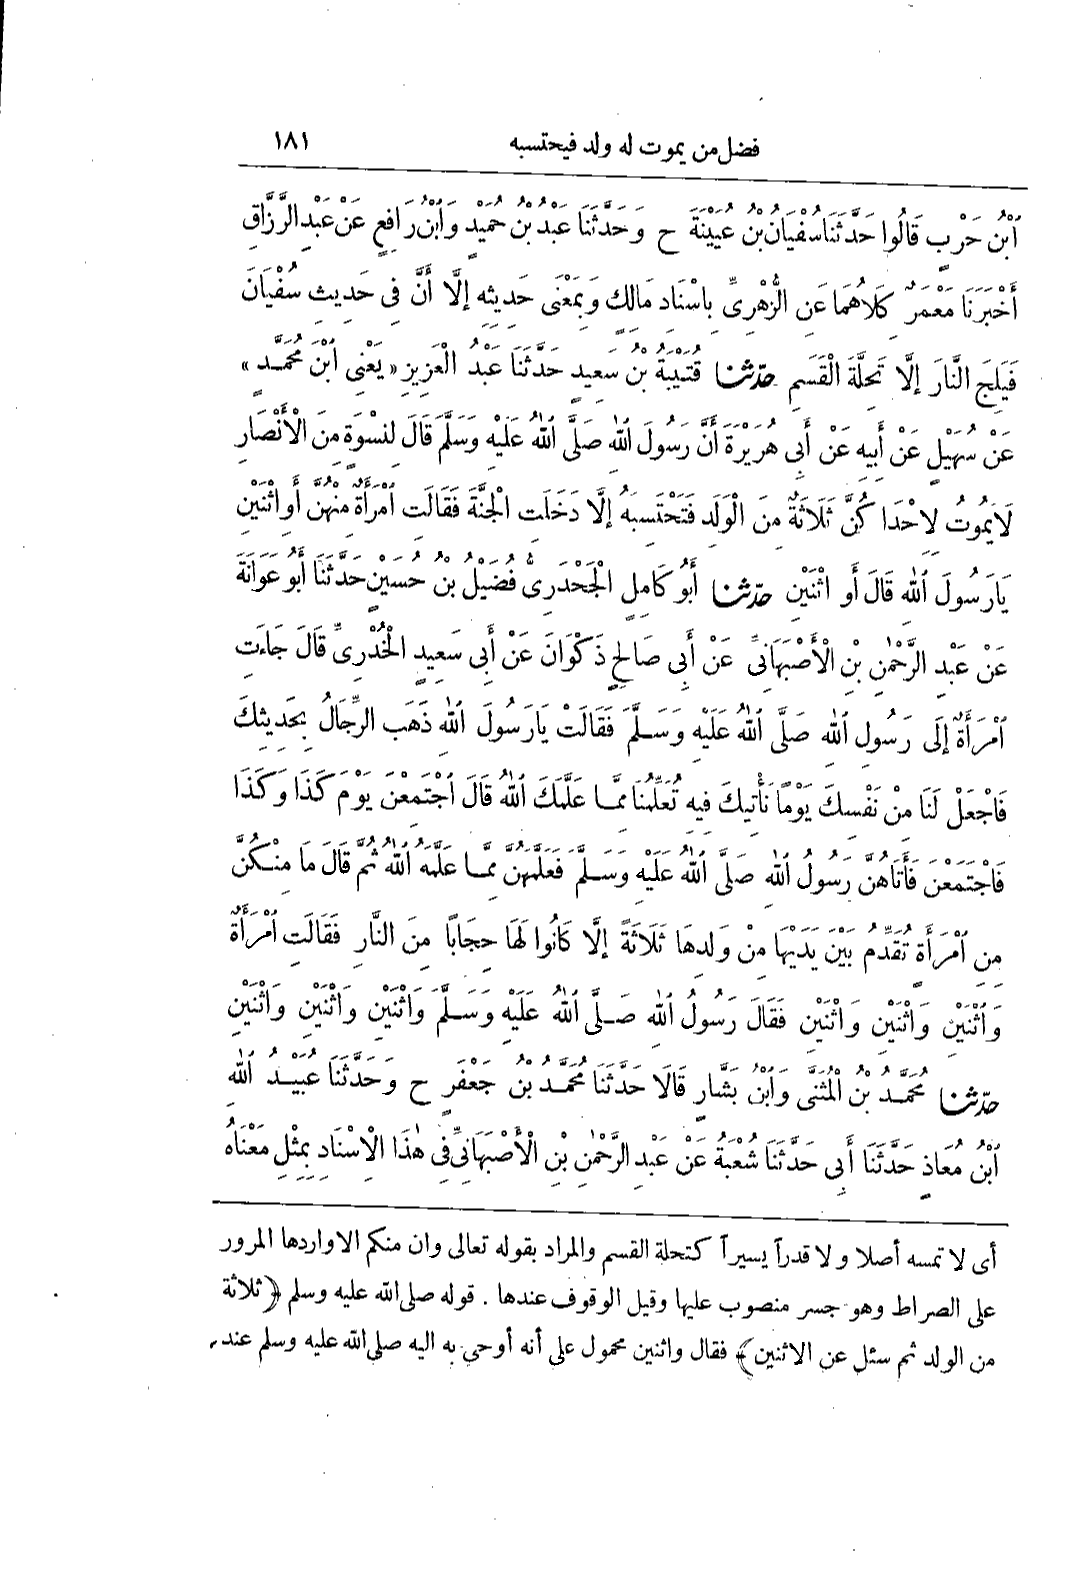 فضل من يموت له ولد فيحتسبه ١٨١
ٱبْنُ حَرْبٍ قَالُوا حَدَّثَنَا سُفْيَانُ بْنُ عُيَيْنَةَ ح وَحَدَّثَنَا عَبْدُ بْنُ حُمَيْدٍ وَٱبْنُ رَافِعٍ عَنْ عَبْدِ الرَّزَّاقِ
أَخْبَرَنَا مَعْمَرٌ كِلَاهُمَا عَنِ الزُّهْرِيِّ بِاسْنَادِ مَالِكٍ وَبِمَعْنَى حَدِيثِهِ إِلَّا أَنَّ فِى حَدِيثِ سُفْيَانَ
فَيَلِجَ النَّارَ إِلَّا تَحِلَّةَ الْقَسَمِ حدثنا قُتَيْبَةُ بْنُ سَعِيدٍ حَدَّثَنَا عَبْدُ الْعَزِيزِ «يَعْنِى ٱبْنَ مُحَمَّدٍ»
عَنْ سُهَيْلٍ عَنْ أَبِيهِ عَنْ أَبِى هُرَيْرَةَ أَنَّ رَسُولَ ٱللهِ صَلَّى ٱللهُ عَلَيْهِ وَسَلَّمَ قَالَ لِنِسْوَةٍ مِنَ الْأَنْصَارِ
لَا يَمُوتُ لِاحْدَا كُنَّ ثَلَاثَةٌ مِنَ الْوَلَدِ فَتَحْتَسِبَهُ إِلَّا دَخَلَتِ الْجَنَّةَ فَقَالَتِ ٱمْرَأَةٌ مِنْهُنَّ أَوِ اثْنَيْنِ
يَارَسُولَ ٱللهِ قَالَ أَوِ اثْنَيْنِ حدثنا أَبُو كَامِلٍ الْجَحْدَرِىُّ فُضَيْلُ بْنُ حُسَيْنٍ حَدَّثَنَا أَبُو عَوَانَةَ
عَنْ عَبْدِ الرَّحْمٰنِ بْنِ الْأَصْبَهَانِىِّ عَنْ أَبِى صَالِحٍ ذَكْوَانَ عَنْ أَبِى سَعِيدٍ الْخُدْرِىِّ قَالَ جَاءَتِ
ٱمْرَأَةٌ إِلَى رَسُولِ ٱللهِ صَلَّى ٱللهُ عَلَيْهِ وَسَلَّمَ فَقَالَتْ يَارَسُولَ ٱللهِ ذَهَبَ الرِّجَالُ بِحَدِيثِكَ
فَاجْعَلْ لَنَا مِنْ نَفْسِكَ يَوْمًا نَأْتِيكَ فِيهِ تُعَلِّمُنَا مِمَّا عَلَّمَكَ ٱللهُ قَالَ ٱجْتَمِعْنَ يَوْمَ كَذَا وَكَذَا
فَاجْتَمَعْنَ فَأَتَاهُنَّ رَسُولُ ٱللهِ صَلَّى ٱللهُ عَلَيْهِ وَسَلَّمَ فَعَلَّمَهُنَّ مِمَّا عَلَّمَهُ ٱللهُ ثُمَّ قَالَ مَا مِنْكُنَّ
مِنِ ٱمْرَأَةٍ تُقَدِّمُ بَيْنَ يَدَيْهَا مِنْ وَلَدِهَا ثَلَاثَةً إِلَّا كَانُوا لَهَا حِجَابًا مِنَ النَّارِ فَقَالَتِ ٱمْرَأَةٌ
وَٱثْنَيْنِ وَاثْنَيْنِ وَاثْنَيْنِ فَقَالَ رَسُولُ ٱللهِ صَلَّى ٱللهُ عَلَيْهِ وَسَلَّمَ وَاثْنَيْنِ وَاثْنَيْنِ وَاثْنَيْنِ
حدثنا مُحَمَّدُ بْنُ الْمُثَنَّى وَٱبْنُ بَشَّارٍ قَالَا حَدَّثَنَا مُحَمَّدُ بْنُ جَعْفَرٍ ح وَحَدَّثَنَا عُبَيْدُ ٱللهِ
ٱبْنُ مُعَاذٍ حَدَّثَنَا أَبِى حَدَّثَنَا شُعْبَةُ عَنْ عَبْدِ الرَّحْمٰنِ بْنِ الْأَصْبَهَانِىِّ فِى هٰذَا الْاِسْنَادِ بِمِثْلِ مَعْنَاهُ
أى لا تمسه أصلا ولا قدراً يسيراً كتحلة القسم والمراد بقوله تعالى وان منكم الا واردها المرور
على الصراط وهو جسر منصوب عليها وقيل الوقوف عندها. قوله صلى الله عليه وسلم ﴿ثلاثة
من الولد ثم سئل عن الاثنين﴾ فقال واثنين محمول على أنه أوحى به اليه صلى الله عليه وسلم عند